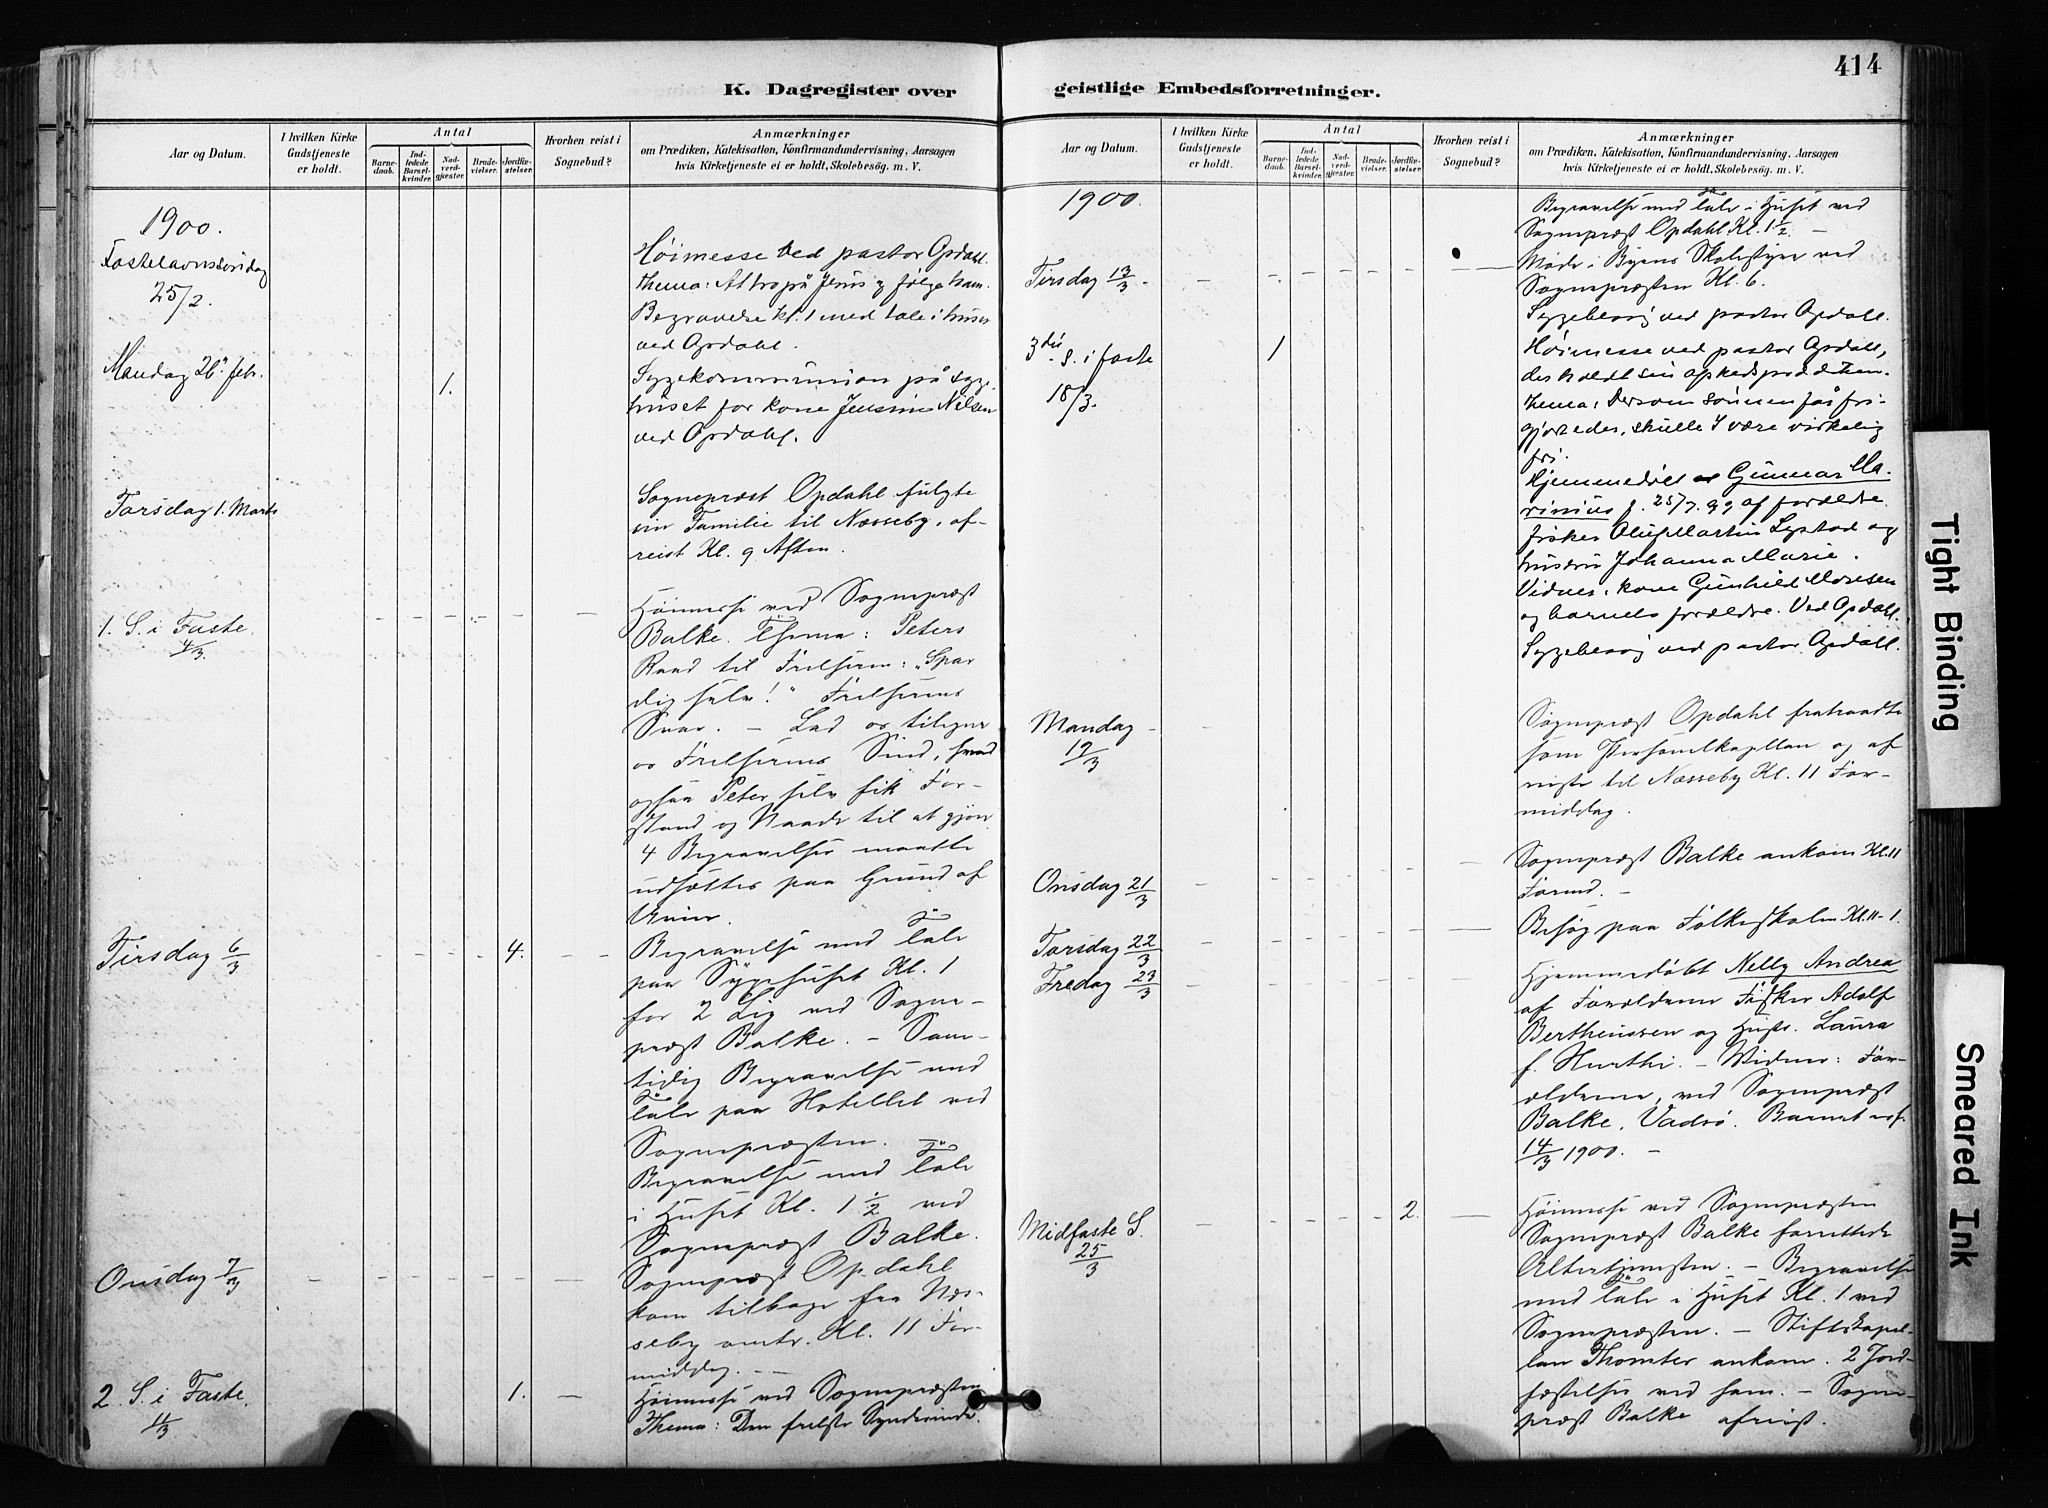 414
K. Dagregister over
geistlige Embedsforretninger.
Aar og Datum.
I hvilken Kirke
Gudstjeneste
er holdt.
Antal
Barne-
daab.
Ind-
ledede
Barsel-
kvinder.
Nad-
verd-
gjæster.
Brude-
vielser.
Jordfæ-
stelser.
Hvorhen reist i
Sognebud?
Anmærkninger
om Prædiken, Katekisation, Konfirmandundervisning, Aarsagen
hvis Kirketjeneste ei er holdt, Skolebesög. m. V.
1900.
Fastelavnssøndag
25/2.
Høimesse ved pastor Opdahl.
thema: At tro på Jesus og følge ham.
Begravelse kl. 1 med tale i huset
ved Opdahl.
Mandag 26. febr.
1.
Sygekommunion på syge-
huset for kone Jensine Nilsen
ved Opdahl.
Torsdag 1. Marts
Sogneprest Opdahl fulgte
sin Familie til Næsseby, af-
reist Kl. 9 Aften.
1. S. i Faste.
4/3.
Høimesse ved Sogneprest
Balke. Thema: Peters
Raad til Frelseren: "Spar
dig selv!" Frelserens
Svar. – Lad os tilegne
os Frelserens Sind, hvad
ogsaa Peter selv fik For-
stand og Naade til at gjøre
4 Begravelser maatte
udsættes paa Grund af
Uveir.
Tirsdag 6/3
4.
Begravelse med Tale
paa Sygehuset Kl. 1
for 2 Lig ved Sogne-
prest Balke. – Sam-
tidig Begravelse med
Tale paa Hotellet ved
Sognepresten. –
Begravelse med Tale
i Huset Kl. 1 1/2 ved
Sogneprest Balke.
Onsdag 7/3
Sogneprest Opdahl
kom tilbage fra Næs-
seby omtr. Kl. 11 For-
middag. –
2. S. i Faste.
11/3
1.
Høimesse ved Sognepresten
Thema: Den frelste Synderinde.
Aar og Datum.
I hvilken Kirke
Gudstjeneste
er holdt.
Antal
Barne-
daab.
Ind-
ledede
Barsel-
kvinder.
Nad-
verd-
gjæster.
Brude-
vielser.
Jordfæ-
stelser.
Hvorhen reist i
Sognebud?
Anmærkninger
om Prædiken, Katekisation, Konfirmandundervisning, Aarsagen
hvis Kirketjeneste ei er holdt, Skolebesög. m. V.
1900.
Begravelse med Tale i Huset ved
Sogneprest Opdahl Kl. 1 1/2 –
Tirsdag 13/3.
Møde i Byens Skolestyre ved
Sognepresten Kl. 6.
Sygebesøg ved pastor Opdahl.
3die S. i faste
18/3.
1
Høimesse ved pastor Opdahl,
der holdt sin afskedsprædiken.
thema: Dersom sønnen får fri-
gjort eder, skulle I være virkelig
fri.
Hjemmedøbt Gunnar Ma-
rinius f. 25/7. 99 af forældre
fisker Oluf Martin Lystad og
hustru Johanna Marie.
Vidner: kone Gunhild Moresen
og barnets forældre. Ved Opdahl.
Sygebesøg ved pastor Opdahl.
Mandag
19/3
Sogneprest Opdahl fratraadte
som Personelkapellan og af
reiste til Næsseby Kl. 11 For-
middag.
Onsdag 21/3
Sogneprest Balke ankom Kl. 11
Formd. –
Torsdag 22/3
Besøg paa Folkeskolen Kl. 11–1.
Fredag 23/3
Hjemmedøbt Nelly Andrea
af Forældrene Fisker Adolf
Bertheussen og Hustr. Laura
f. Hurthi. – Vidner: For-
ældrene, ved Sogneprest
Balke, Vadsø. Barnet er f.
14/3 1900. –
Midfaste S.
25/3
2.
Høimesse ved Sognepresten
Sogneprest Balke forrettede
Altertjenesten. – Begravelse
med Tale i Huset Kl. 1 ved
Sognepresten. – Stiftskapel-
lan Thomter ankom. 2 Jord-
fæstelser ved ham. – Sogne-
prest Balke afreist.
Tight Binding
Smeared Ink